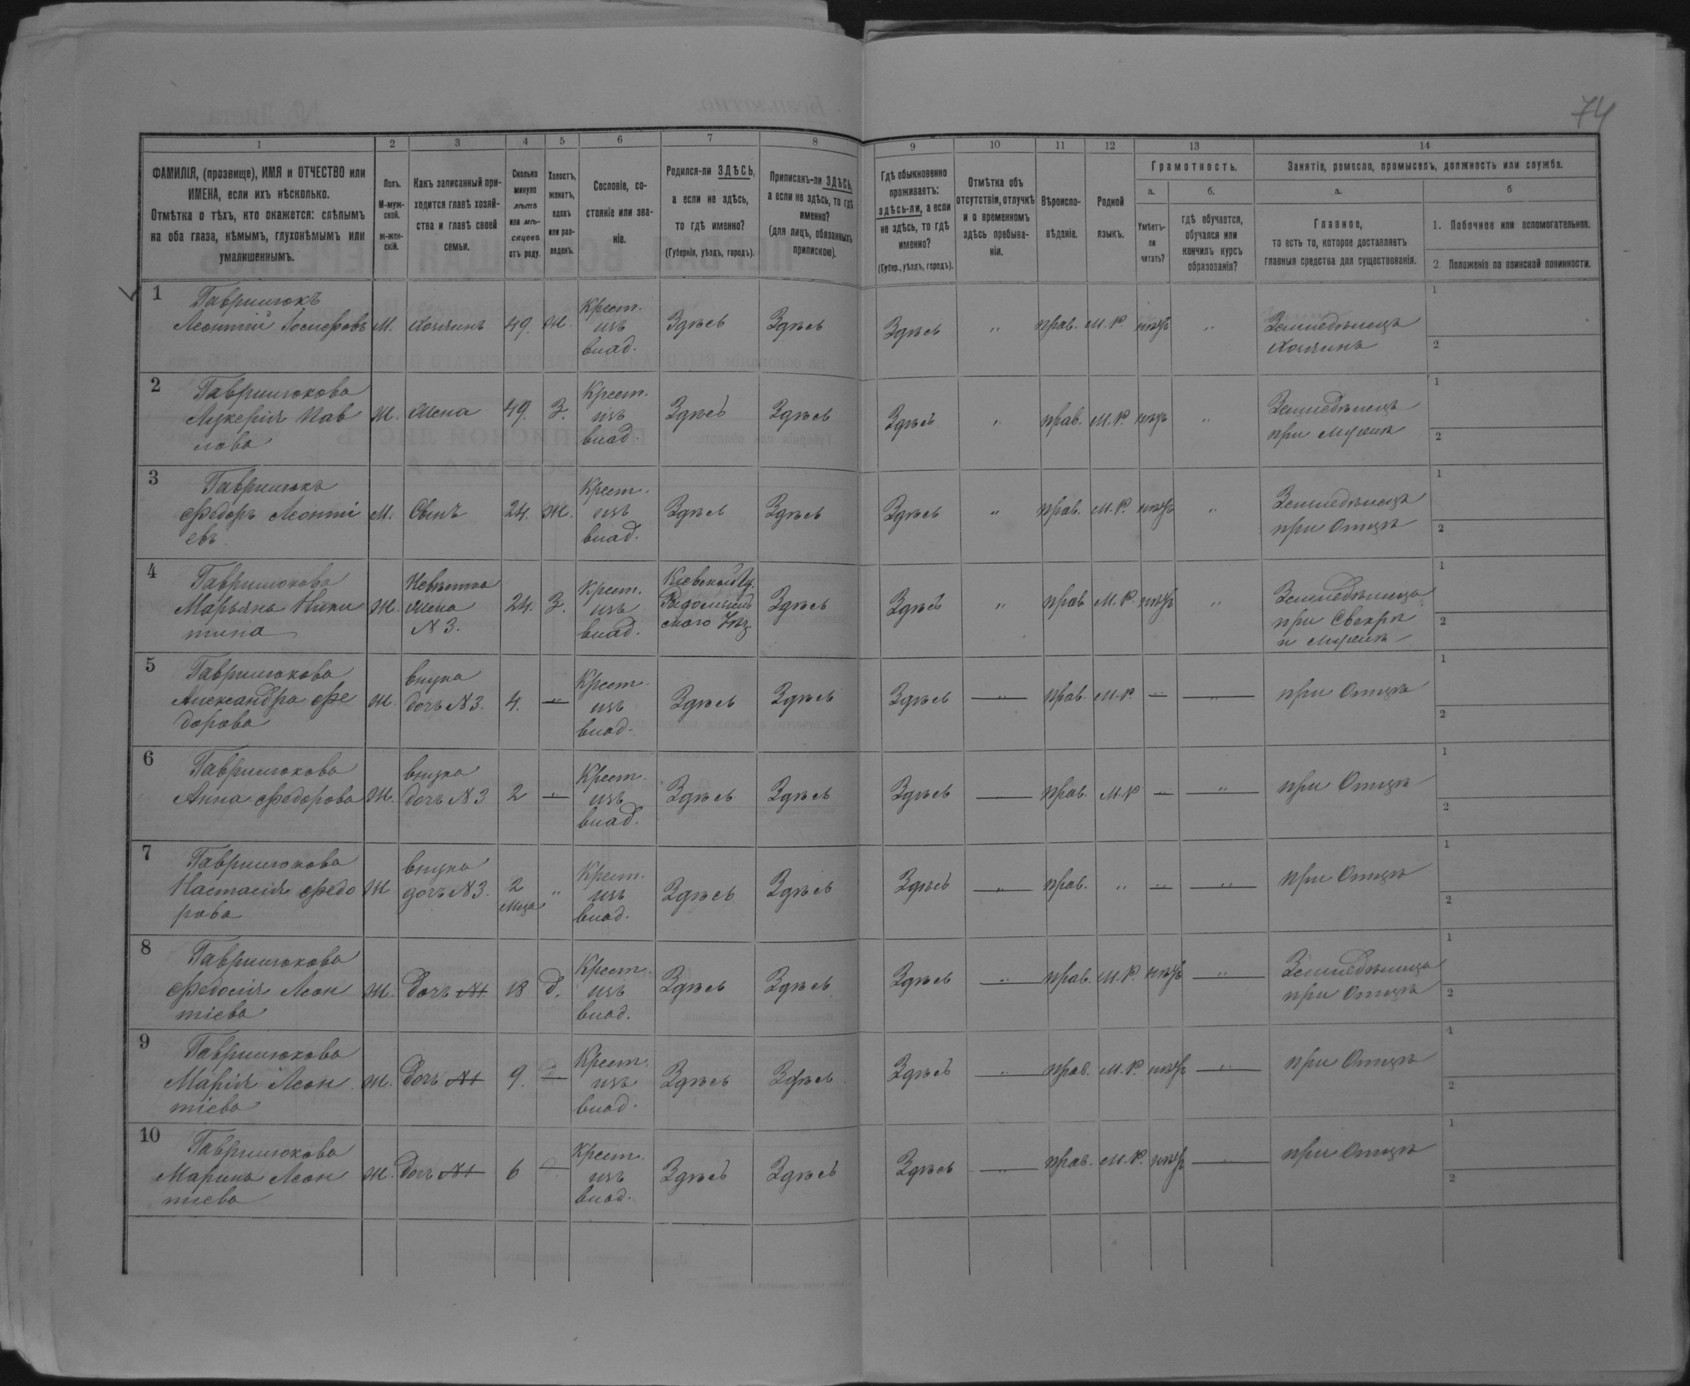 74
1 2 3 4 5 6 7 8 9 10 11 12 13 14
ФАМИЛІЯ, (прозвище), ИМЯ и ОТЧЕСТВО или
ИМЕНА, если ихъ нѣсколько.
Отмѣтка о тѣхъ, кто окажется: слѣпымъ
на оба глаза, нѣмымъ, глухонѣмымъ или
умалишеннымъ.
Полъ.
М-муж-
ской.
ж-жен-
скій.
Какъ записанный при-
ходится главѣ хозяй-
ства и главѣ своей
семьи.
Сколько
минуло
лѣтъ
или мѣ-
сяцевъ
отъ роду.
Холостъ,
женатъ,
вдовъ
или раз-
веденъ.
Сословіе, со-
стояніе или зва-
ніе.
Родился-ли ЗДѢСЬ,
а если не здѣсь,
то гдѣ именно?
(Губернія, уѣздъ, городъ).
Приписанъ-ли ЗДѢСЬ,
а если не здѣсь, то гдѣ
именно?
(для лицъ, обязанныхъ
припискою).
Гдѣ обыкновенно
проживаетъ:
здѣсь-ли, а если
не здѣсь, то гдѣ
именно?
(Губер., уѣздъ, городъ).
Отмѣтка объ
отсутствіи, отлучкѣ
и о временномъ
здѣсь пребыва-
ніи.
Вѣроиспо-
вѣданіе.
Родной
языкъ.
Грамотность.
а.
Умѣетъ-
ли
читать?
б.
гдѣ обучается,
обучался или
кончилъ курсъ
образованія?
Занятіе, ремесло, промыселъ, должность или служба.
а.
Главное,
то есть то, которое доставляетъ
главныя средства для существованія.
б
1. Побочное или вспомогательное.
2 Положеніе по воинской повинности.
1
Гаврилюкъ
Леонтій Іосифовъ
М. Хозяинъ 49. Ж.
Крест.
изъ
влад.
Здѣсь Здѣсь Здѣсь „ прав. М.Р. нѣтъ „
Земледѣлецъ
Хозяинъ
1
2
2
Гаврилюкова
Лукерія Пав
лова
Ж. Жена 49. З.
Крест.
изъ
влад.
Здѣсь Здѣсь Здѣсь „ прав. М.Р. нѣтъ „
Земледѣлецъ
при мужѣ
1
2
3
Гаврилюкъ
Федоръ Леонті
евъ
М. Сынъ 24. Ж.
Крест.
изъ
влад.
Здѣсь Здѣсь Здѣсь „ прав. М.Р. нѣтъ „
Земледѣлецъ
при Отцѣ
1
2
4
Гаврилюкова
Марьяна Ники
тина
Ж.
Невѣстка
жена
№ 3.
24. З.
Крест.
изъ
влад.
Кіевской Гу.
Радомысль
скаго Уѣз.
Здѣсь Здѣсь „ прав М.Р. нѣтъ „
Земледѣлица
при Свекрѣ
и мужѣ
1
2
5
Гаврилюкова
Александра Фе
дорова
Ж.
внука
дочь № 3.
4. „
Крест.
изъ
влад.
Здѣсь Здѣсь Здѣсь „ прав. М.Р. — „
при Отцѣ
1
2
6
Гаврилюкова
Анна Федорова
Ж.
внука
дочь № 3
2 „
Крест.
изъ
влад.
Здѣсь Здѣсь Здѣсь — прав. М.Р — „
при Отцѣ
1
2
7
Гаврилюкова
Настасія Федо
рова
Ж
внука
дочь № 3.
2
мѣца
„
Крест.
изъ
влад.
Здѣсь Здѣсь Здѣсь „ прав. „ „ „
при Отцѣ
1
2
8
Гаврилюкова
Федосія Леон
тіева
Ж. Дочь №1 18 д.
Крест.
изъ
влад.
Здѣсь Здѣсь Здѣсь „ прав. М.Р. нѣтъ „
Земледѣлица
при Отцѣ
1
2
9
Гаврилюкова
Марія Леон
тіева
Ж. Дочь №1 9. —
Крест.
изъ
влад.
Здѣсь Здѣсь Здѣсь „ прав. М.Р. нѣтъ „
при Отцѣ
1
2
10
Гаврилюкова
Марина Леон
тіева
Ж. Дочь №1 6 —
Крест.
изъ
влад.
Здѣсь Здѣсь Здѣсь „ прав. М.Р. нѣтъ „
при Отцѣ
1
2